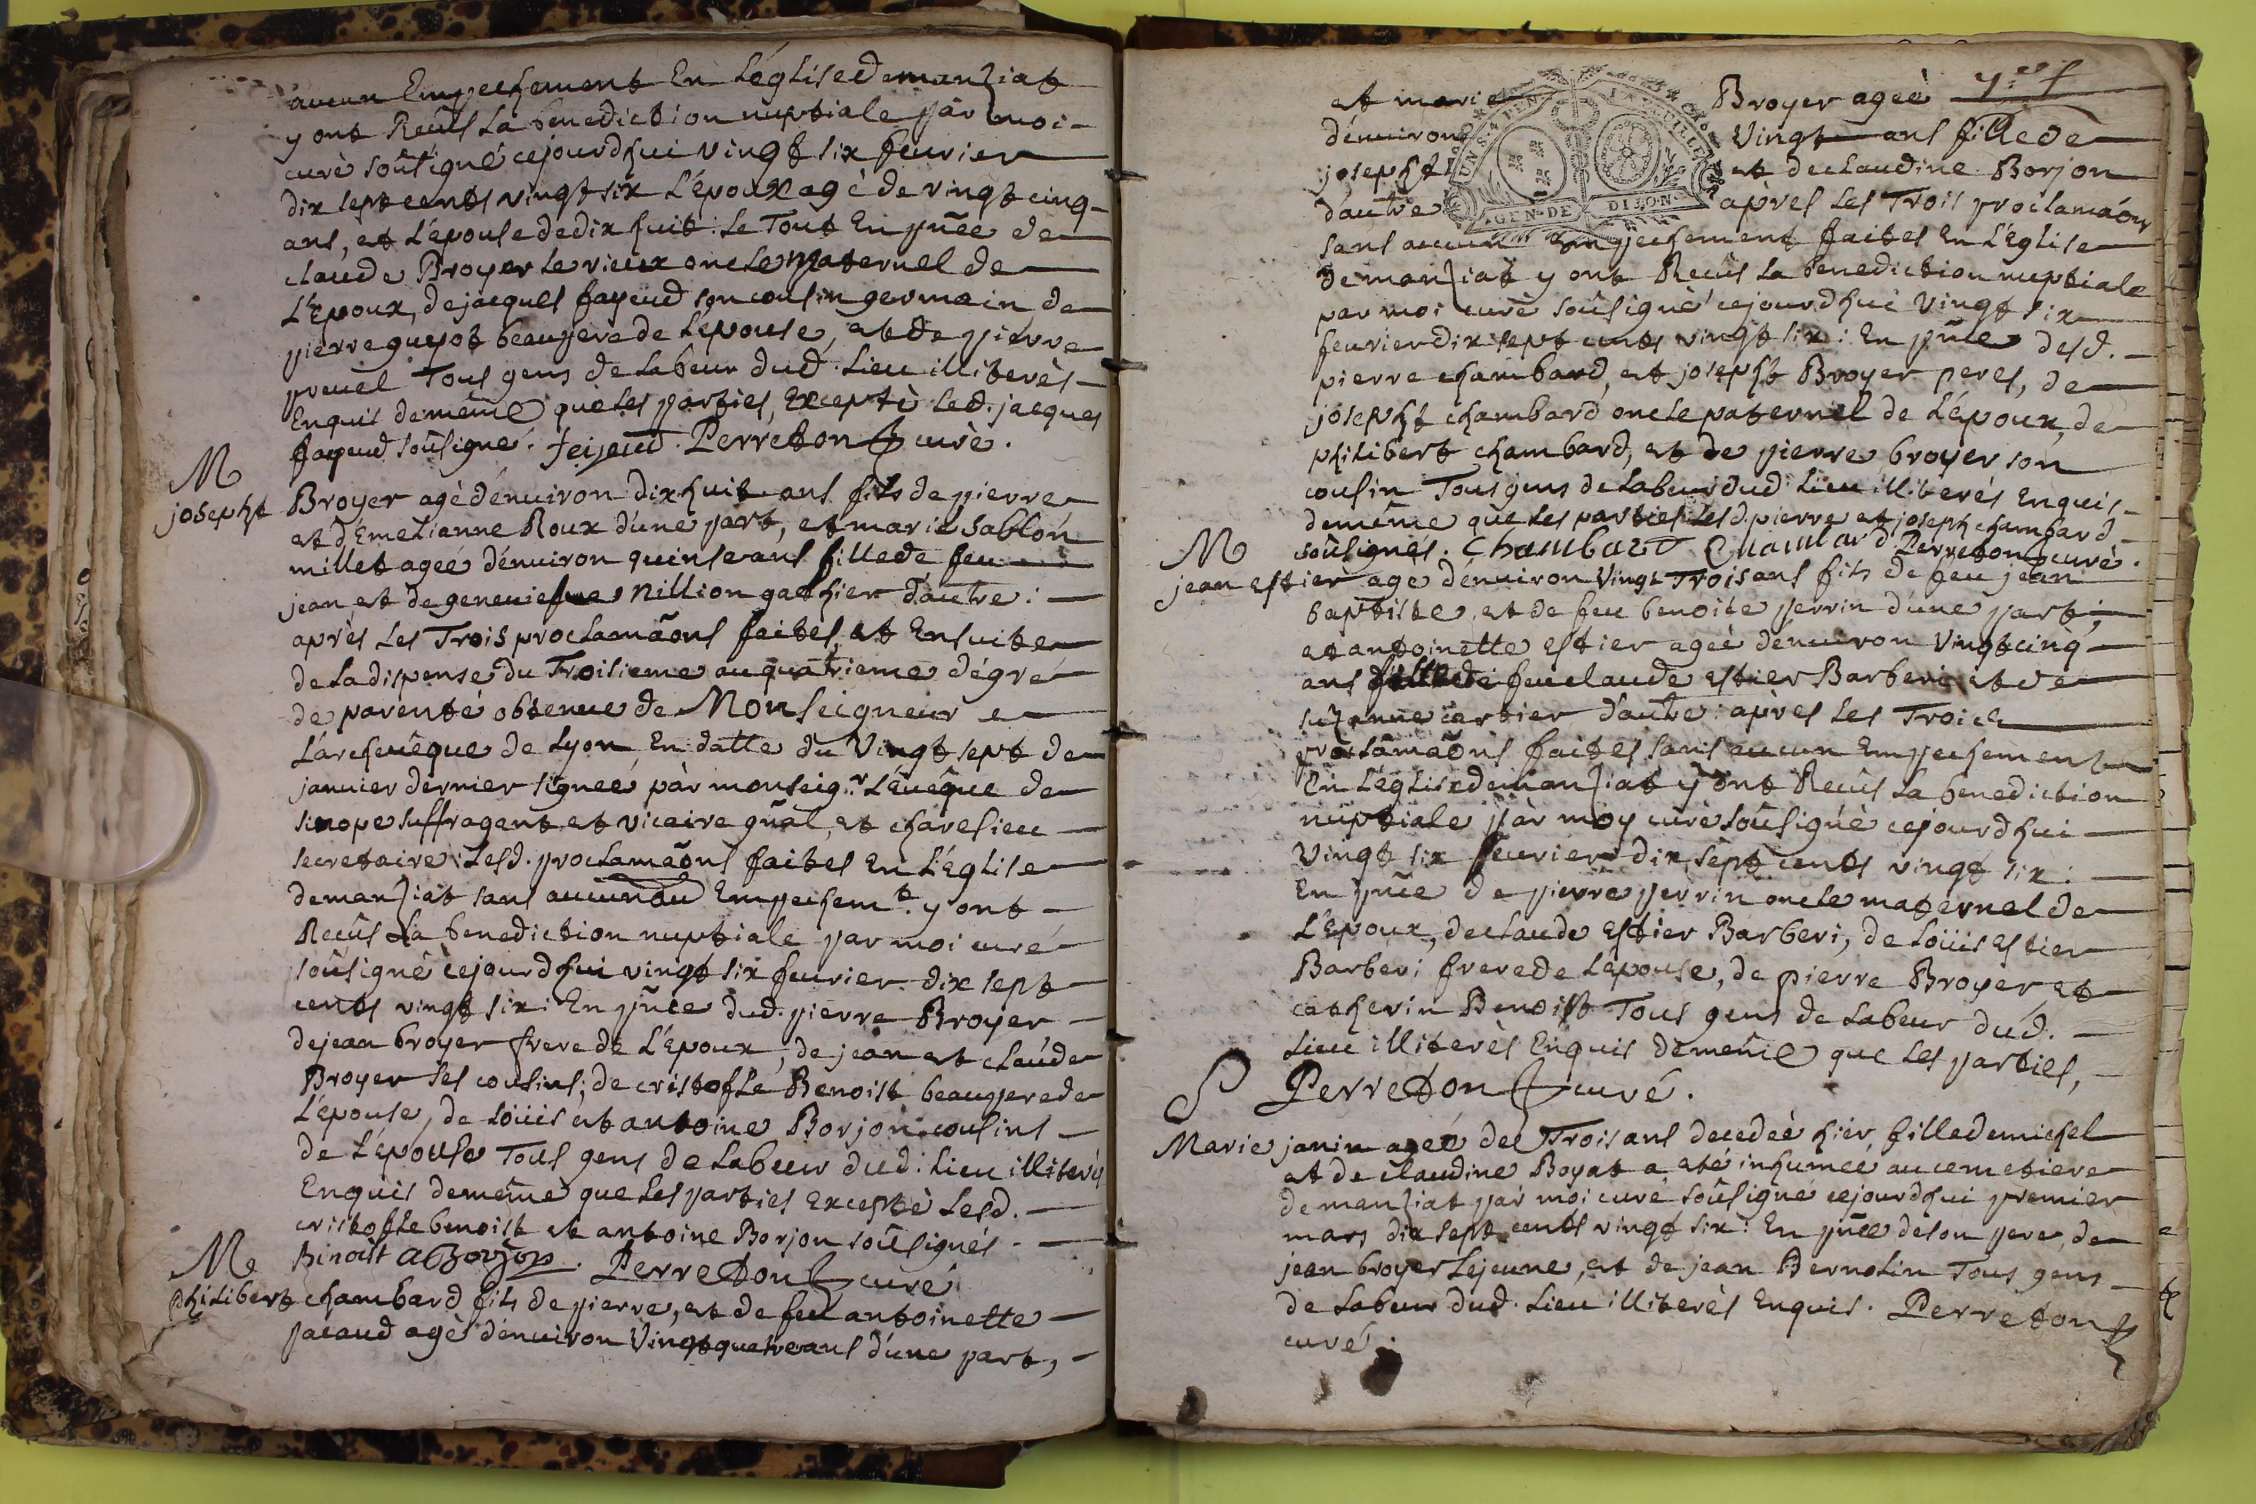 aucun Empechement En L'églisedemanziat
y ont Recûs La benediction nuptiale par moi
curé soûsigné cejourdhui vingt six fevrier
dix sept cents vingt six L'époux agè de vingt cinq
ans, et L'épouse dedix huit : Le Tout En pñce de
claude Broyer Le vieux oncle maternel de
L'Epoux, dejacques fayeud son cousin germain de
pierre guyot beaupere de L'épouse, et de pierre
preuel Tous gens de Labeur dud. Lieu illiterès
Enquis demême què Les parties, Exceptè Led. jacques
fayeud soûsigné. feijeud. Perreton curè.
M
josepht Broyer agè dénuiron dixhuit ans fils de pierre
et d'Emelianne Roux d'une part, et marie sablon
millet ageé dénuiron quinse ans fillede feu
jean, et de geneviefue Nillion gathier d'autre :
après Les Trois proclamãons faites, et Ensuite
de La dispense du Troisieme au quatrieme dégré
de parenté obtenue de Monseigneur
L'archeuêque de Lyon En datte du Vingt sept de
januier dernier signeé pàr monseigr. L'Euêque de
sinope suffragent et vicaire gñal, et charesieu
secretaire : Lesd. proclamãons faites En L'église
demanziat sans aucun Empechemt. y ont
Recûs La benediction nuptiale par moi curé
soûsigné cejourdhui vingt six fevrier dix sept
cents vingt six : En pñce dud. pierre Broyer
dejean broyer frere de L'Epoux, de jean et claude
Broyer ses cousins; de cristofle Benoist beaupere de
L'épouse, de Loüis et antoine Borjon cousins
de L'épouse Tous gens de Labeur dud. Lieu illiterès
Enquis demême que Les parties Exceptè Lesd.
cristofle benoist et antoine Borjon soûsignés.
Binoist ABorjon. Perreton curé
M
philibert chambard fils de pierre, et de feu antoinette
pacaud agè dénuiron Vingt quatre ans d'une part,
et marie Broyer ageè
dénuiron Vingt ans fillede
josepht et declaudine Borjon
d'autre après Les Trois proclamãons
GEN. DE DIJON
sans aucun Empechement faites En L'Eglise
demanziat y ont Recûs La benediction nuptiale
par moi curé soûsigné cejourdhui vingt six
feurier dix sept cents vingt six : En pñce desd.
pierre chambard, et josepht Broyer peres, de
josepht chambard oncle paternel de L'époux, de
philibert chambard, et de pierre broyer son
cousin Tous gens de Labeur dud. Lieu illiterés Enquis
demême que Les parties Lesd. pierre et joseph chambard
soûsignés. Chambard Chambard Perreton curè.
M
jean estier agè dénuiron Vingt Trois ans fils de feu jean
baptiste, et de feu benoite perrin d'une part,
et antoinette estier ageè dénuiron Vingtcinq
ans fille de feu claude estier Barberi et de
suzanne cartier d'autre : après Les Trois
proclamãons faites sans aucun Empechement
En L'églisedemanziat y ont Recûs La benediction
nuptiale pàr moy curè soûsigné cejourdhui
Vingt six feurier dix sept cents vingt six :
En pñce de pierre perrin oncle maternel de
L'Epoux, declaude Estier Barberi, de Loüis estier
Barberi frere de L'epouse, de pierre Broyer et
catherin Benoist Tous gens de Labeur dud.
Lieu illiterès Enquis demême que Les parties,
Perreton curé.
S
Marie janin ageé de Trois ans decedeè hier, fille demichel
et de claudine Boyat a eté inhumeé au cemetiere
demanziat pàr moi curé soûsigné cejourdhui premier
mars dix sept cents vingt six : En pñce de son pere, de
jean broyer Lejeune, et de jean Bernolin Tous gens
de Labeur dud. Lieu illiterès Enquis. Perreton
curé.